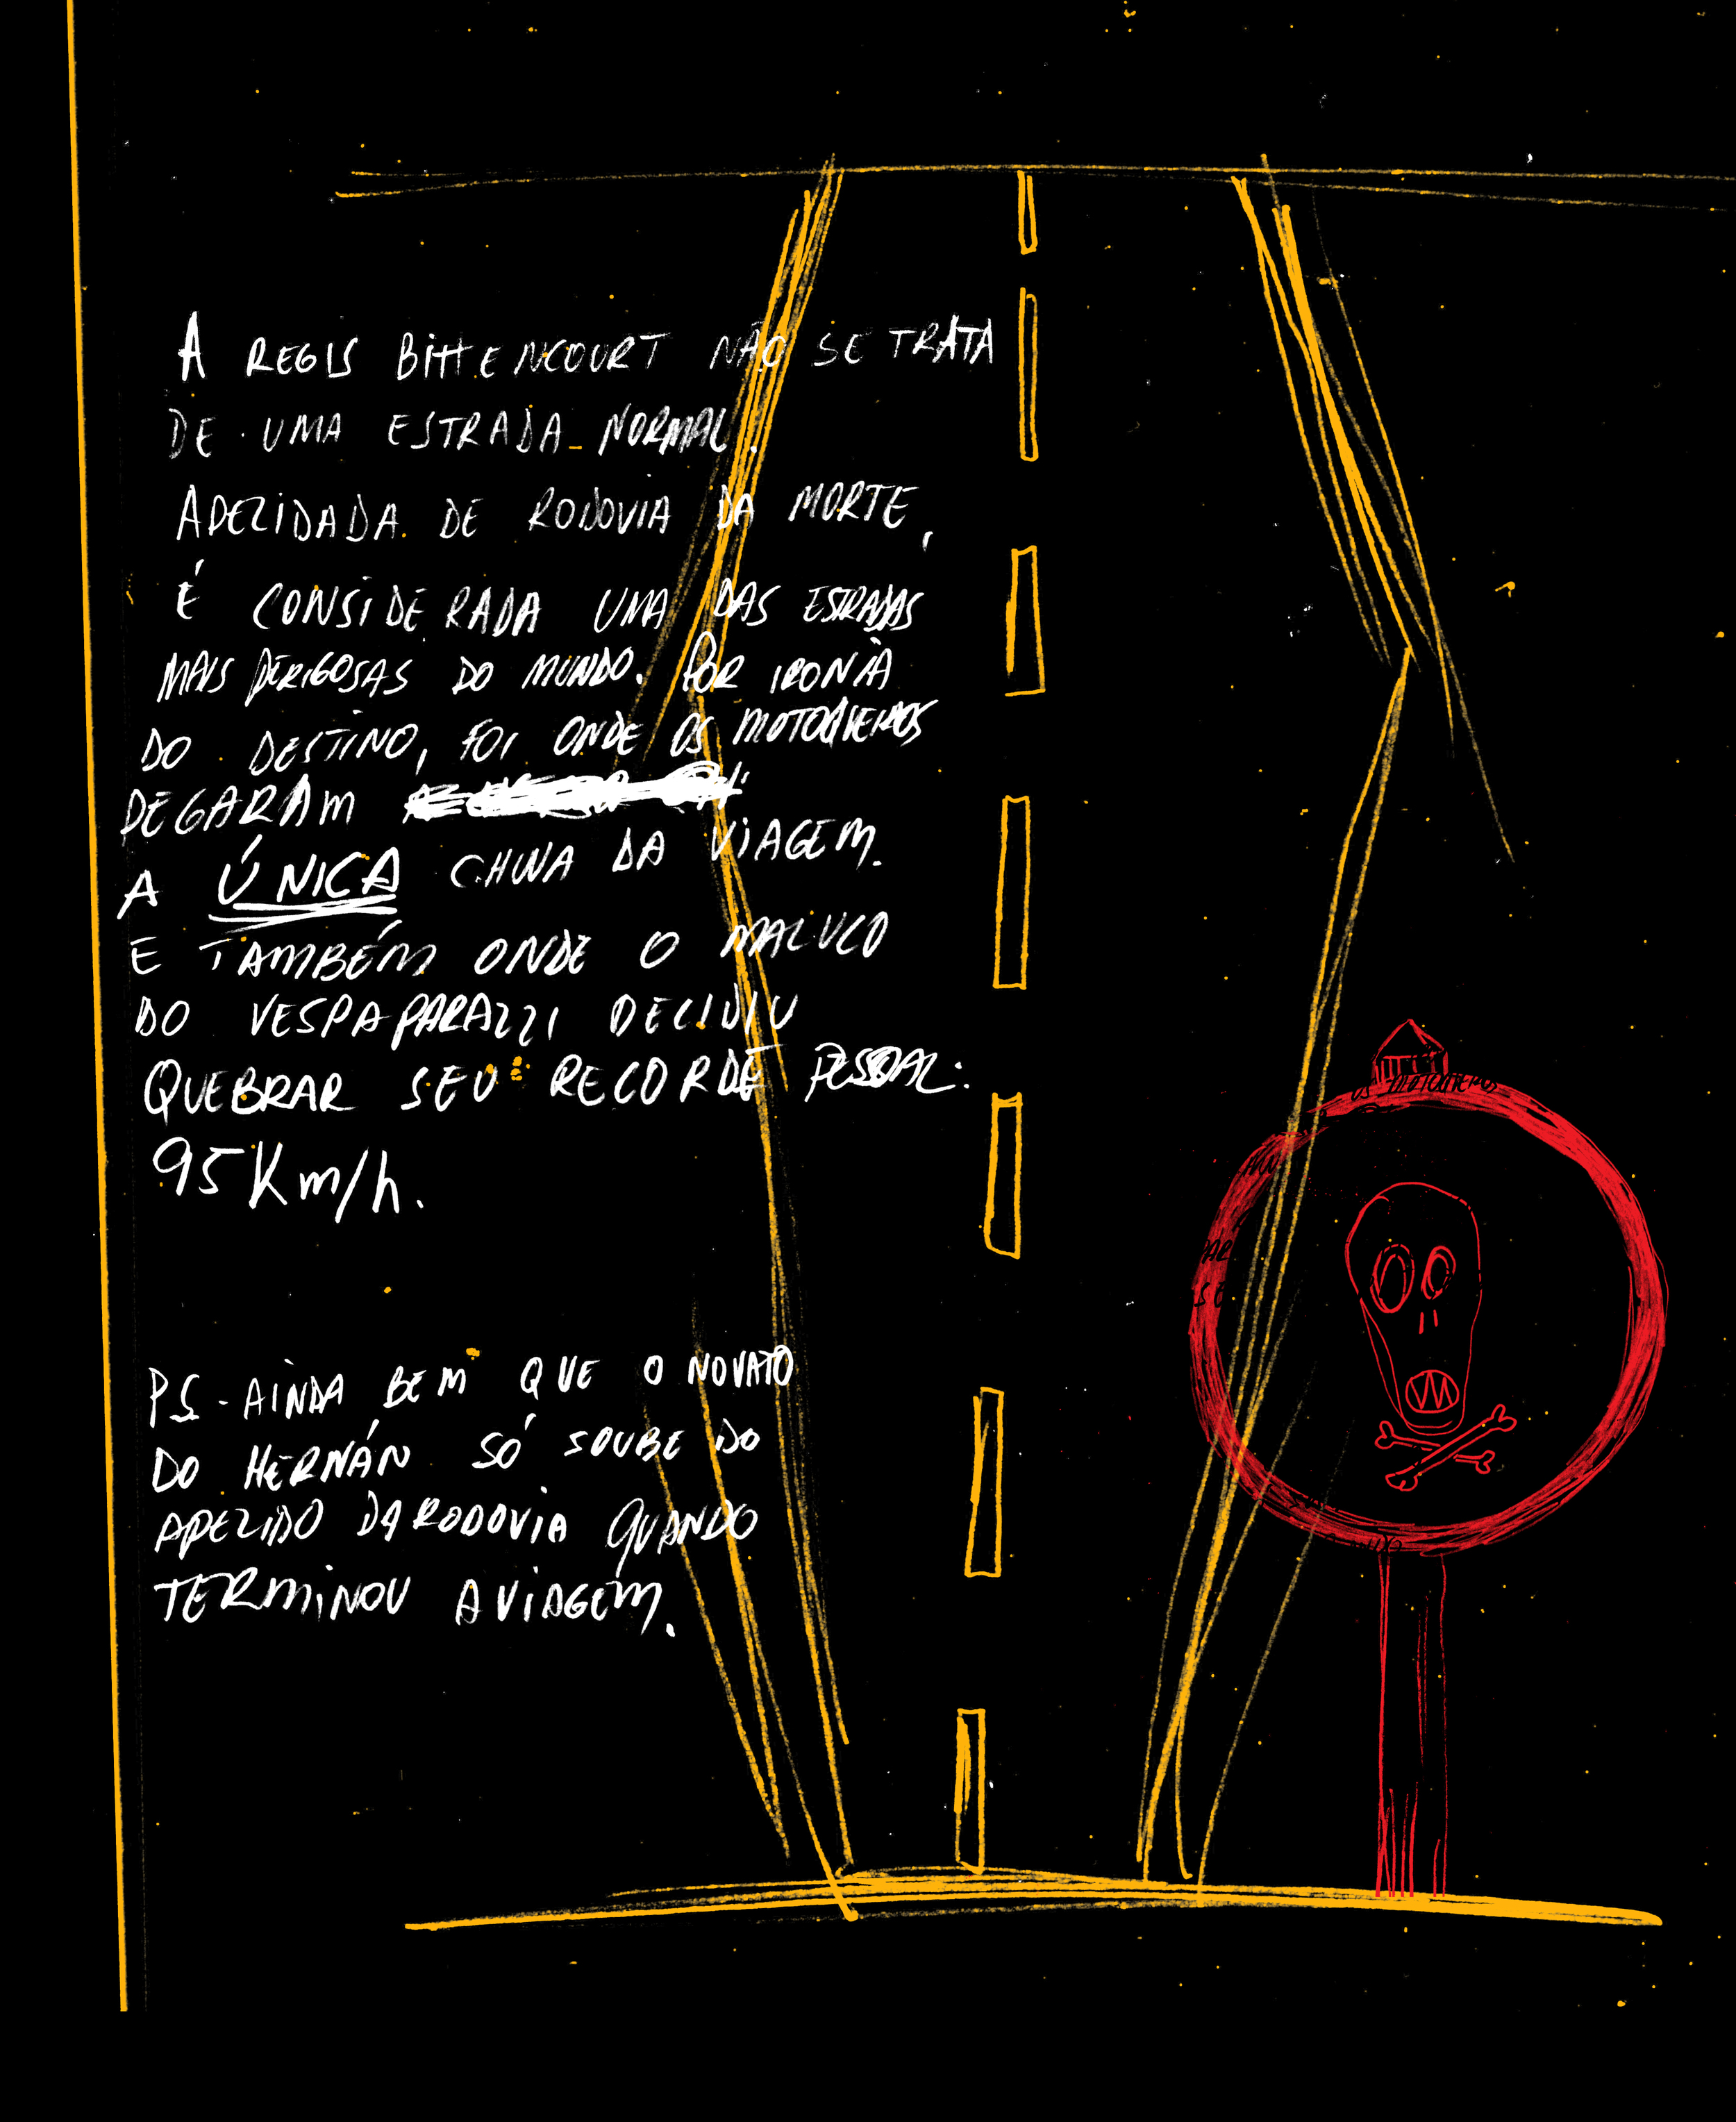 A REGIS BITTENCOURT NÃO SE TRATA
DE UMA ESTRADA NORMAL.
APELIDADA DE RODOVIA DA MORTE,
É CONSIDERADA UMA DAS ESTRADAS
MAIS PERIGOSAS DO MUNDO. POR IRONIA
DO DESTINO, FOI ONDE OS MOTOQUEIROS
PEGARAM
A ÚNICA CHUVA DA VIAGEM.
E TAMBÉM ONDE O MALUCO
DO VESPAPARAZZI DECIDIU
QUEBRAR SEU RECORDE PESSOAL:
95 Km/h.
PS - AINDA BEM QUE O NOVATO
DO HERNÁN SÓ SOUBE DO
APELIDO DA RODOVIA QUANDO
TERMINOU A VIAGEM.